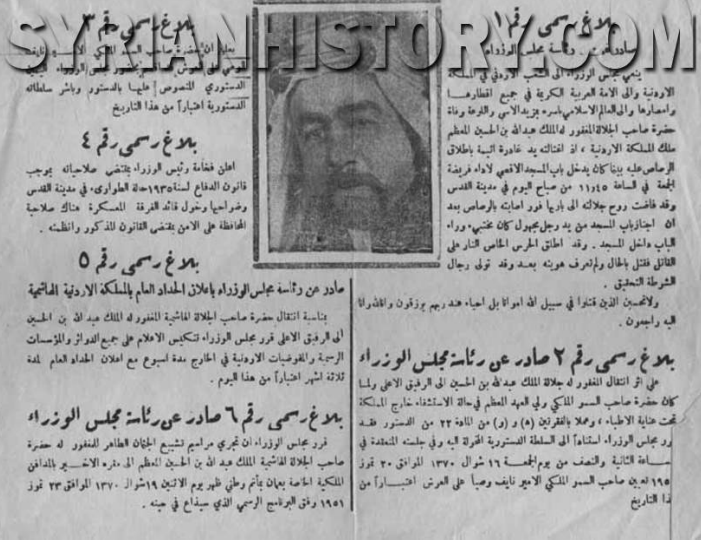 SYRIANHISTORY.COM
بلاغ رسمي رقم ١
صادر عن رئاسة مجلس الوزراء
ينعي مجلس الوزراء الى الشعب الاردني في المملكة
الاردنية والى الامة العربية الكريمة في جميع اقطارها
وامصارها والى العالم الاسلامي باسره بمزيد الاسى واللوعة وفاة
حضرة صاحب الجلالة المغفور له الملك عبد الله بن الحسين المعظم
ملك المملكة الاردنية ، اذ اغتالته يد غادرة اثيمة باطلاق
الرصاص عليه بينما كان يدخل باب المسجد الاقصى لاداء فريضة
الجمعة في الساعة ١١،٤٥ من صباح اليوم في مدينة القدس
وقد فاضت روح جلالته الى باريها فور اصابته بالرصاص بعد
ان اجتاز باب المسجد من يد رجل مجهول كان مختبيء وراء
الباب داخل المسجد . وقد اطلق الحرس الخاص النار على
القاتل فقتل بالحال ولم تعرف هويته بعد وقد تولى رجال
الشرطة التحقيق .
ولا تحسبن الذين قتلوا في سبيل الله امواتا بل احياء عند ربهم يرزقون وانا لله وانا
اليه راجعون .
بلاغ رسمي رقم ٢ صادر عن رئاسة مجلس الوزراء
على اثر انتقال المغفور له جلالة الملك عبد الله بن الحسين الى الرفيق الاعلى ولما
كان حضرة صاحب السمو الملكي ولي العهد المعظم في حالة الاستشفاء خارج المملكة
تحت عناية الاطباء ، وعملا بالفقرتين (ه) و (و) من المادة ٢٢ من الدستور فقد
رر مجلس الوزراء استنادا الى السلطة الدستورية المخولة اليه وفي جلسته المنعقدة في
ساعة الثانية والنصف من يوم الجمعة ١٦ شوال ١٣٧٠ الموافق ٢٠ تموز
١٩٥ تعيين صاحب السمو الملكي الامير نايف وصيا على العرش اعتبارا من
ذا التاريخ
بلاغ رسمي رقم ٣
يعلن ان حضرة صاحب السمو الملكي الامير نايف
الوصي على العرش اقسم بحضور مجلس الوزراء اليمين
الدستوري المنصوص عليها بالدستور وباشر سلطاته
الدستورية اعتبارا من هذا التاريخ
بلاغ رسمي رقم ٤
اعلن فخامة رئيس الوزراء بمقتضى صلاحياته بموجب
قانون الدفاع لسنة ١٩٣٥ حالة الطواريء في مدينة القدس
وضواحيها وخول قائد الفرقة المعسكرة هناك صلاحية
المحافظة على الامن بمقتضى القانون المذكور وانظمته .
بلاغ رسمي رقم ٥
صادر عن رئاسة مجلس الوزراء باعلان الحداد العام بالمملكة الاردنية الهاشمية
بمناسبة انتقال حضرة صاحب الجلالة الهاشمية المغفور له الملك عبد الله بن الحسين
الى الرفيق الاعلى قرر مجلس الوزراء تنكيس الاعلام على جميع الدوائر والمؤسسات
الرسمية والمفوضيات الاردنية في الخارج مدة اسبوع مع اعلان الحداد العام لمدة
ثلاثة اشهر اعتبارا من هذا اليوم .
بلاغ رسمي رقم ٦ صادر عن رئاسة مجلس الوزراء
قرر مجلس الوزراء ان تجري مراسيم تشييع الجثمان الطاهر للمغفور له حضرة
صاحب الجلالة الهاشمية الملك عبد الله بن الحسين المعظم الى مقره الاخير بالمدافن
الملكية الخاصة بعمان بمأتم وطني ظهر يوم الاثنين ١٩ شوال ١٣٧٠ الموافق ٢٣ تموز
١٩٥١ وفق البرنامج الرسمي الذي سيذاع في حينه .